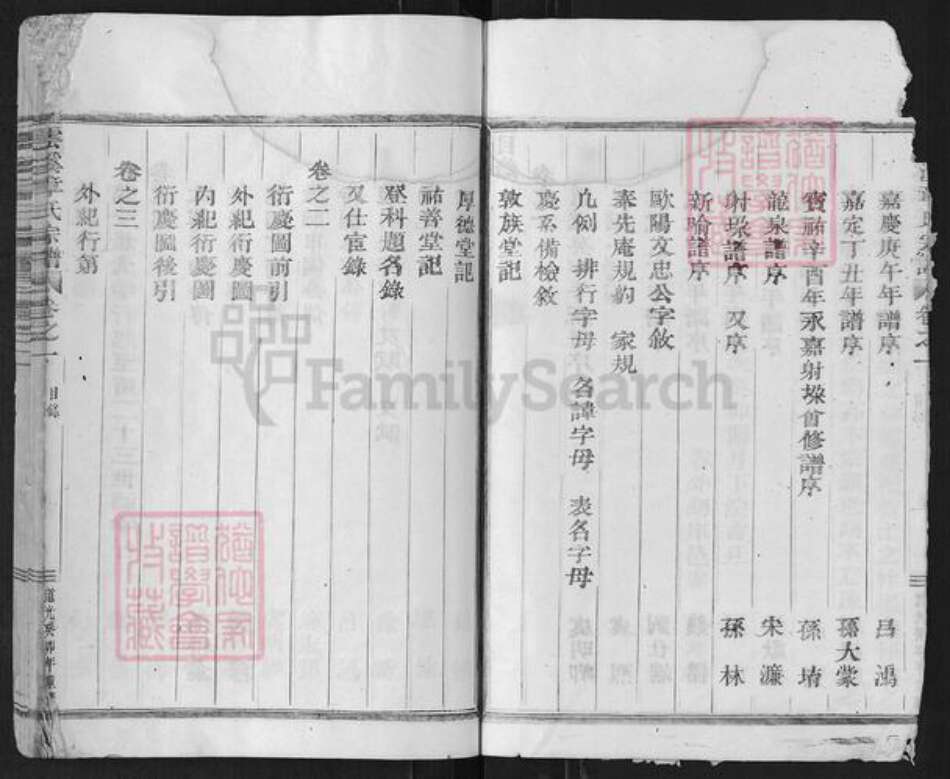 嘉慶庚午年譜序 呂鴻
嘉定丁丑年譜序 孫大蒙
寶祐辛酉年永嘉射垛首修譜序 孫埼
龍泉譜序 宋濂
射垛譜序 又序 孫林
新喻譜序
歐陽文忠公字敘
奉先庵規約 家規
凡例 排行字母 名諱字母 表名字母
敦族堂記
厚德堂記
祐善堂記
登科題名錄
又仕宦錄
卷之二
衍慶圖前引
外紀衍慶圖
內紀衍慶圖
衍慶圖後引
卷之三
外紀行第
氏宗譜 卷之一 目錄
FamilySearch